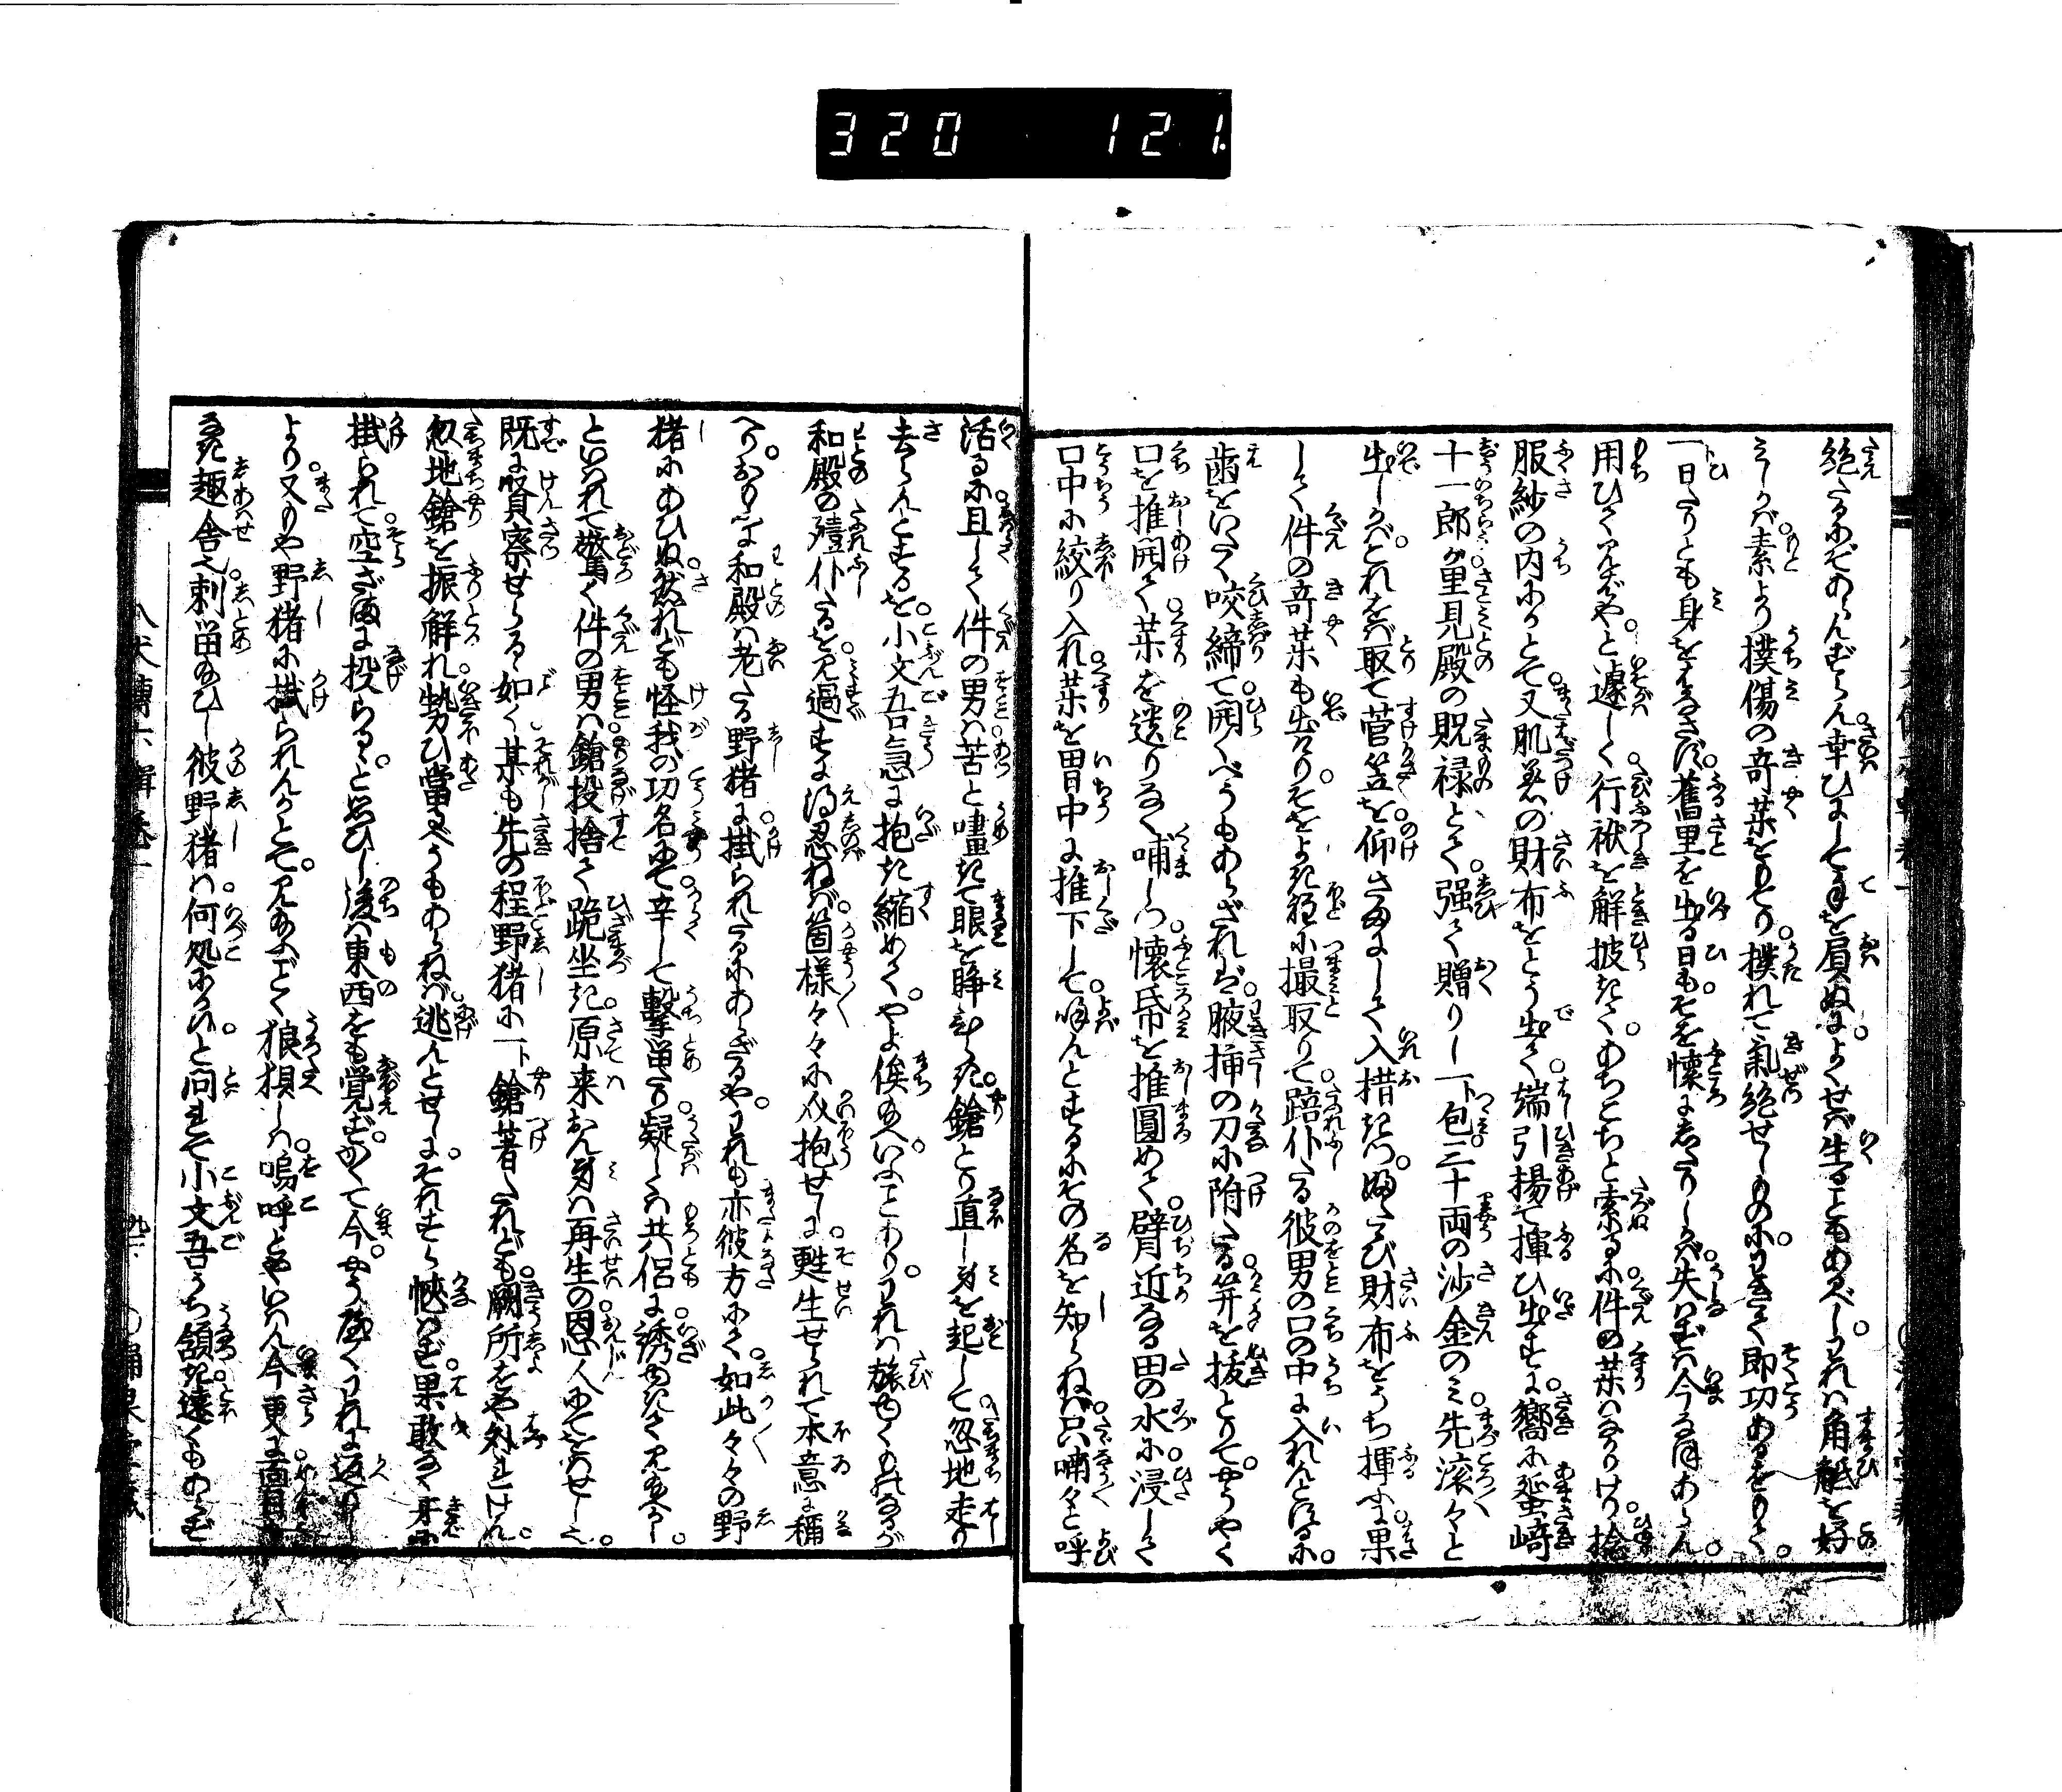 320 121
絶たるにぞあらんずらん。幸ひにして手を負ぬに。よくせば生ることもあるべし。われは角觝を好
みしかば。素より撲傷の奇薬をもてり。撲れて氣絶せしものに。はやく即功あるをもて。
一日たりとも身をはなさず。舊里を出る日も。そを懐にしたりしかば。失はずは今なほあらん。
用ひて見ばやと遽しく。行袱を解披きて。あちこちと索るに。件の薬はなかりけり。
服紗の内にかとて。又肌著の財布をとう出て。端引揚て揮ひ出すに。嚮に蜑崎
十一郎が里見殿の贶禄とて。强て贈りし一ト包。三十両の沙金のみ。先滚々と
出しかば。これをば取て菅笠を。仰さまにして入措きつ。婦たび財布をうち揮ふに。果
して件の奇薬も出たりけり。そをよき程に撮取りて。踣仆たる彼男の口の中に入れんとするに。
歯をいたく咬締て。開くべうもあらざれば。腋挿の刀に附たる笄を抜とりて。やうやく
口を推開て。薬を遣りなく哺しつ。懐帋を推圓めて。臂近なる田の水に浸して
口中に絞り入れ。薬を胃中に推下して。呼んとするにその名を知らねば。只喃々と呼
活るに。且して件の男は苦と嘨きて眼を睜き。鎗とり直し身を起して。忽地走り
去らんとするを。小文吾急に抱き縮めて。やよ俟給へ。いふことあり。われは旅ゆくものなるが
和殿の殪仆たるを見過すに得忍ねば。箇様々々に介抱せしに。甦生せられて本意に稱
へり。おもふに和殿は老たる野猪に。掛られたるにあらざるや。われも亦彼方にて。如此々々の野
猪にあひぬ。然れども怪我の功名にて。辛して擊畱たり。疑しくは共侶に。誘ゆきて見給へかし。
といはれて驚く件の男は。鎗投捨て跪坐き。原来おん身は再生の。恩人にてをはせしか。
既に賢察せらるゝ如く。某も先の程野猪に一ト鎗著たれども。𨵵所をや外れけん。
忽地鎗を振解れ勢ひ當るべうもあらねば。逃んとせしに。それすら恊はず。果敢なく牙に
掛られて。空ざまに投らるゝと思ひし後は。東西をも覚ず。かくて今。やう蘇てわれに返りし
より。又もや野猪に掛られんかとて。見給ふごとく狼狽しは。嗚呼ともいはん。今更に面目も
なき趣舎也。刺畱給ひし彼野猪は。何処にかある。と問れて小文吾うち頷き。遠くもあらず
八犬傳六輯巻一